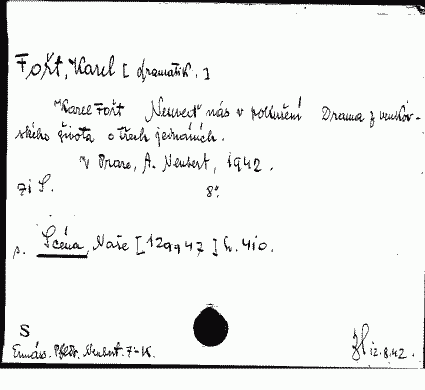 Fořt, Karel [dramatik.]
Karel Fořt Neuveď nás v pokušení Drama z venkov-
ského života o třech jednáních.
V Praze, A. Neubert, 1942.
71 S. 8°.
s. Scéna, Naše [129947] h. 410.
S
Neubert. 7-K. 12.8.42.